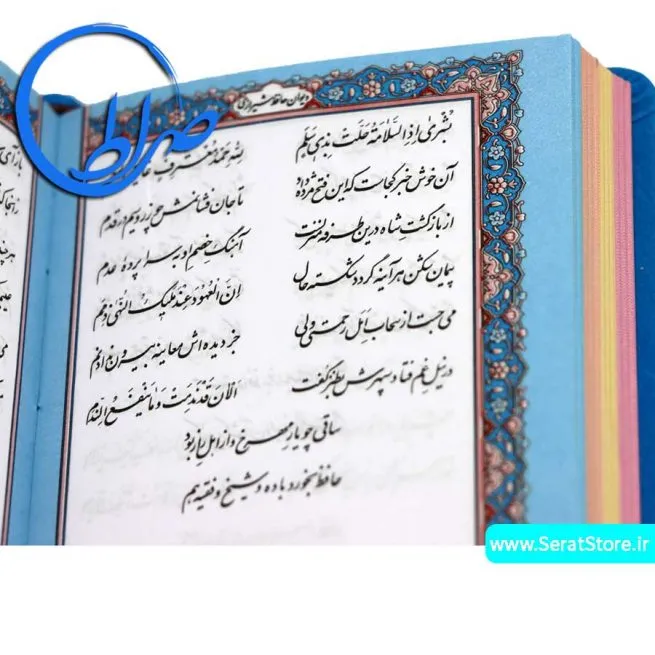 دیوان حافظ شیرازی
صراط
بُشْریٰ اِذِ السَّلامَةُ حَلَّتْ بِذی سَلَمِ لِلّهِ حَمْدُ مُعْتَرِفٍ
آن خوش خبر کجاست که این فتح مژده داد تا جان فشانمش چو زر و سیم در قدم
از بازگشت شاه درین طرفه منزلست آهنگ خصم او به سراپردهٔ عدم
پیمان شکن هرآینه گردد شکسته حال اِنَّ الْعُهُودَ عِنْدَ مَلیکِ النُّهیٰ ذِمَم
می جست از سحاب اَمَل رحمتی ولی جز دیده اش معاینه بیرون نداد نم
در نیل غم فتاد سپهرش بطنز گفت اَلْآنَ قَدْ نَدِمْتَ وَ مَا یَنْفَعُ النَّدَم
ساقی چو یار مهرخ و از اهل راز بود
حافظ بخورد باده و شیخ و فقیه هم
www.SeratStore.ir